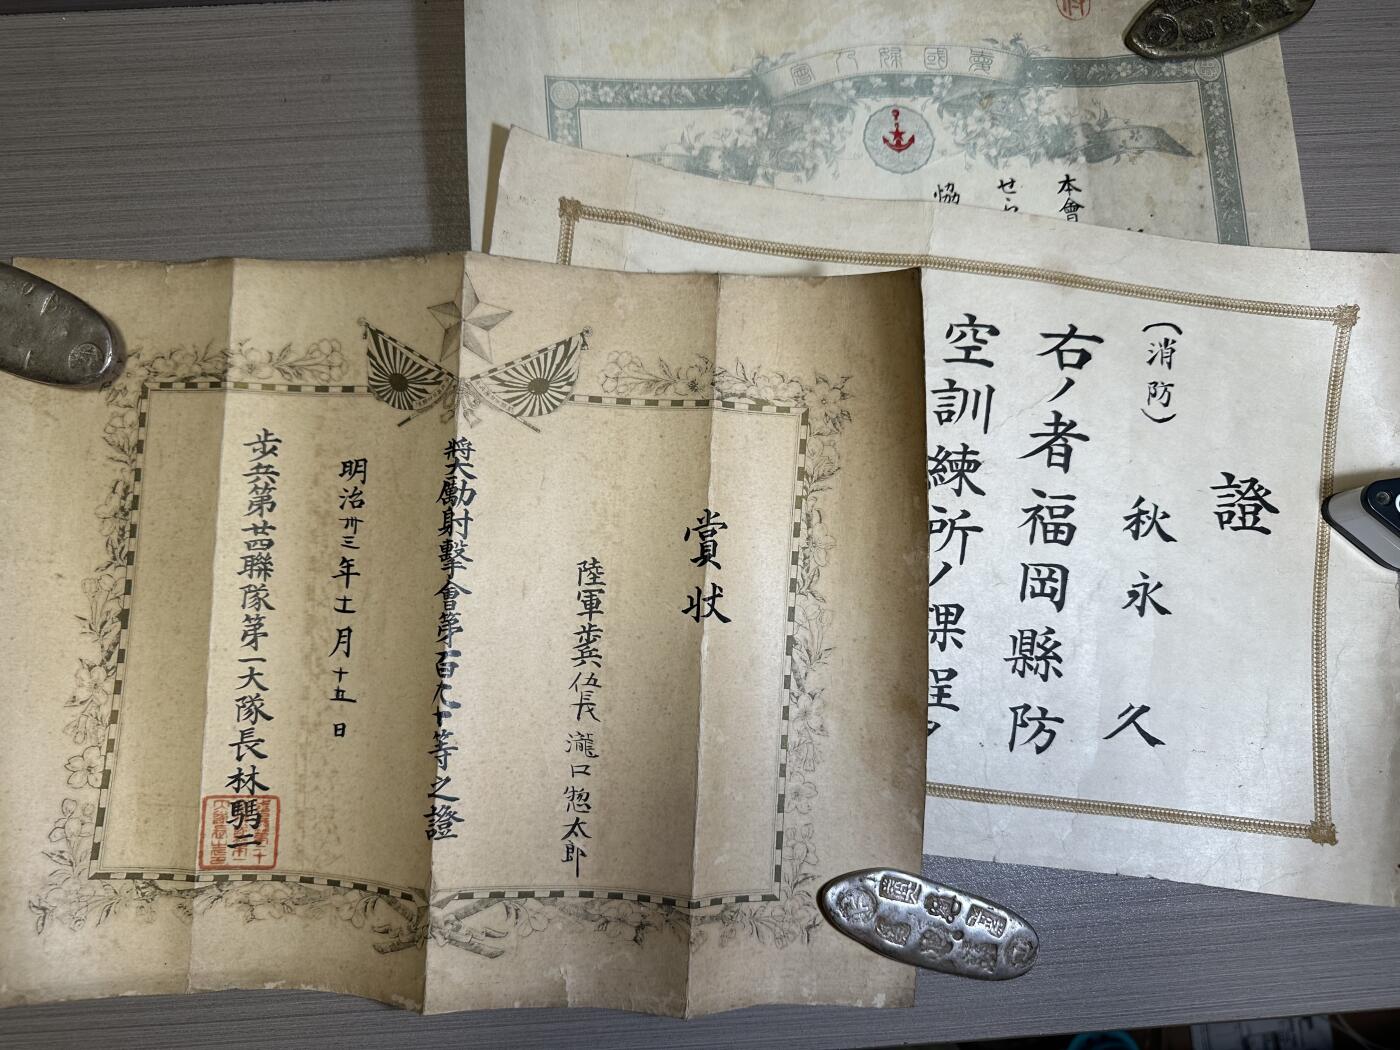 愛國婦人會
本會
せら
恊
證
(消防)
秋永久
右ノ者福岡縣防
空訓練所ノ課程ヲ
賞状
陸軍歩兵伍長瀧口惣太郎
將大勵射擊會第百九十等之證
明治卅三年十一月十五日
歩兵第廿四聯隊第一大隊長林騳二